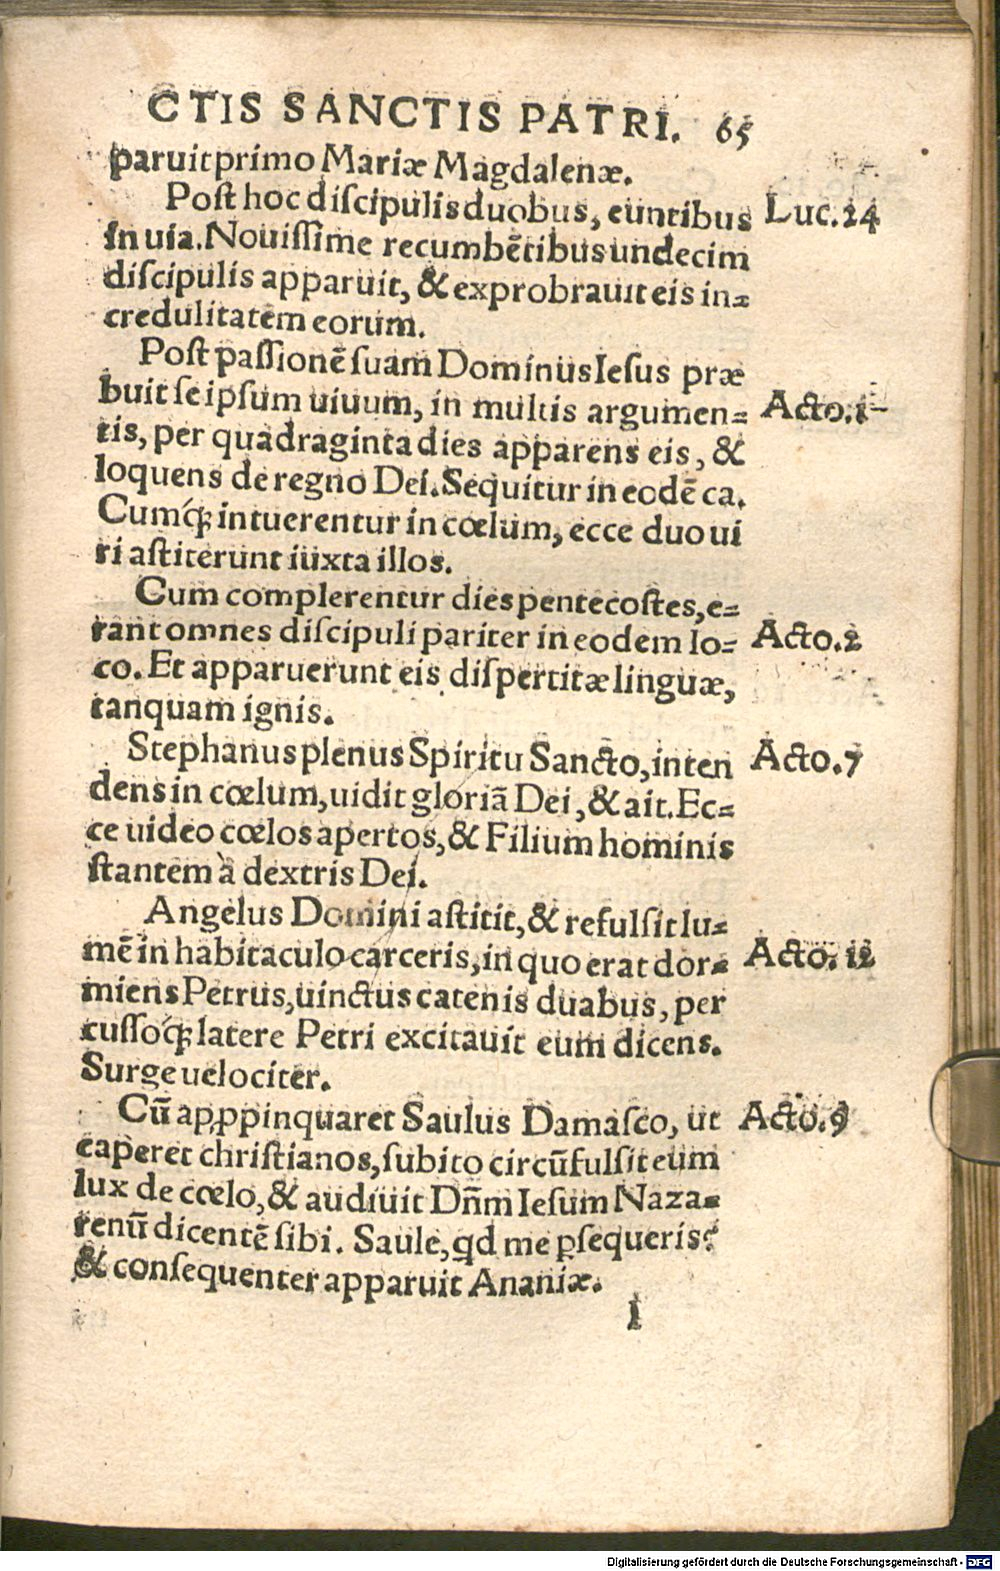 CTIS SANCTIS PATRI. 65
paruit primo Mariæ Magdalenæ.
Post hoc diſcipulis duobus, euntibus Luc.24
in uia. Nouiſſime recumbẽtibus undecim
diſcipulis apparuit, & exprobrauit eis in-
credulitatem eorum.
Poſt paſſionẽ ſuam Dominus Ieſus præ
buit ſeipſum uiuum, in multis argumen- Acto.1
tis, per quadraginta dies apparens eis, &
loquens de regno Dei. Sequitur in eodẽ ca.
Cumq́; intuerentur in cœlum, ecce duo ui
ri aſtiterunt iuxta illos.
Cum complerentur dies pentecoſtes, e-
rant omnes diſcipuli pariter in eodem lo- Acto.2
co. Et apparuerunt eis diſpertitæ linguæ,
tanquam ignis.
Stephanus plenus Spiritu Sancto, inten Acto.7
dens in cœlum, uidit gloriã Dei, & ait. Ec-
ce uideo cœlos apertos, & Filium hominis
ſtantem à dextris Dei.
Angelus Domini aſtitit, & refulſit lu-
mẽ in habitaculo carceris, in quo erat dor- Acto. 12
miens Petrus, uinctus catenis duabus, per
cuſſoq́; latere Petri excitauit eum dicens.
Surge uelociter.
Cũ ap̱p̱pinquaret Saulus Damaſco, ut Acto.9
caperet chriſtianos, ſubito circũfulſit eum
lux de cœlo, & audiuit Dñm Ieſum Naza-
renũ dicentẽ ſibi. Saule, qd me ꝑſequeris?
& conſequenter apparuit Ananiæ.
I
Digitalisierung gefördert durch die Deutsche Forschungsgemeinschaft - DFG